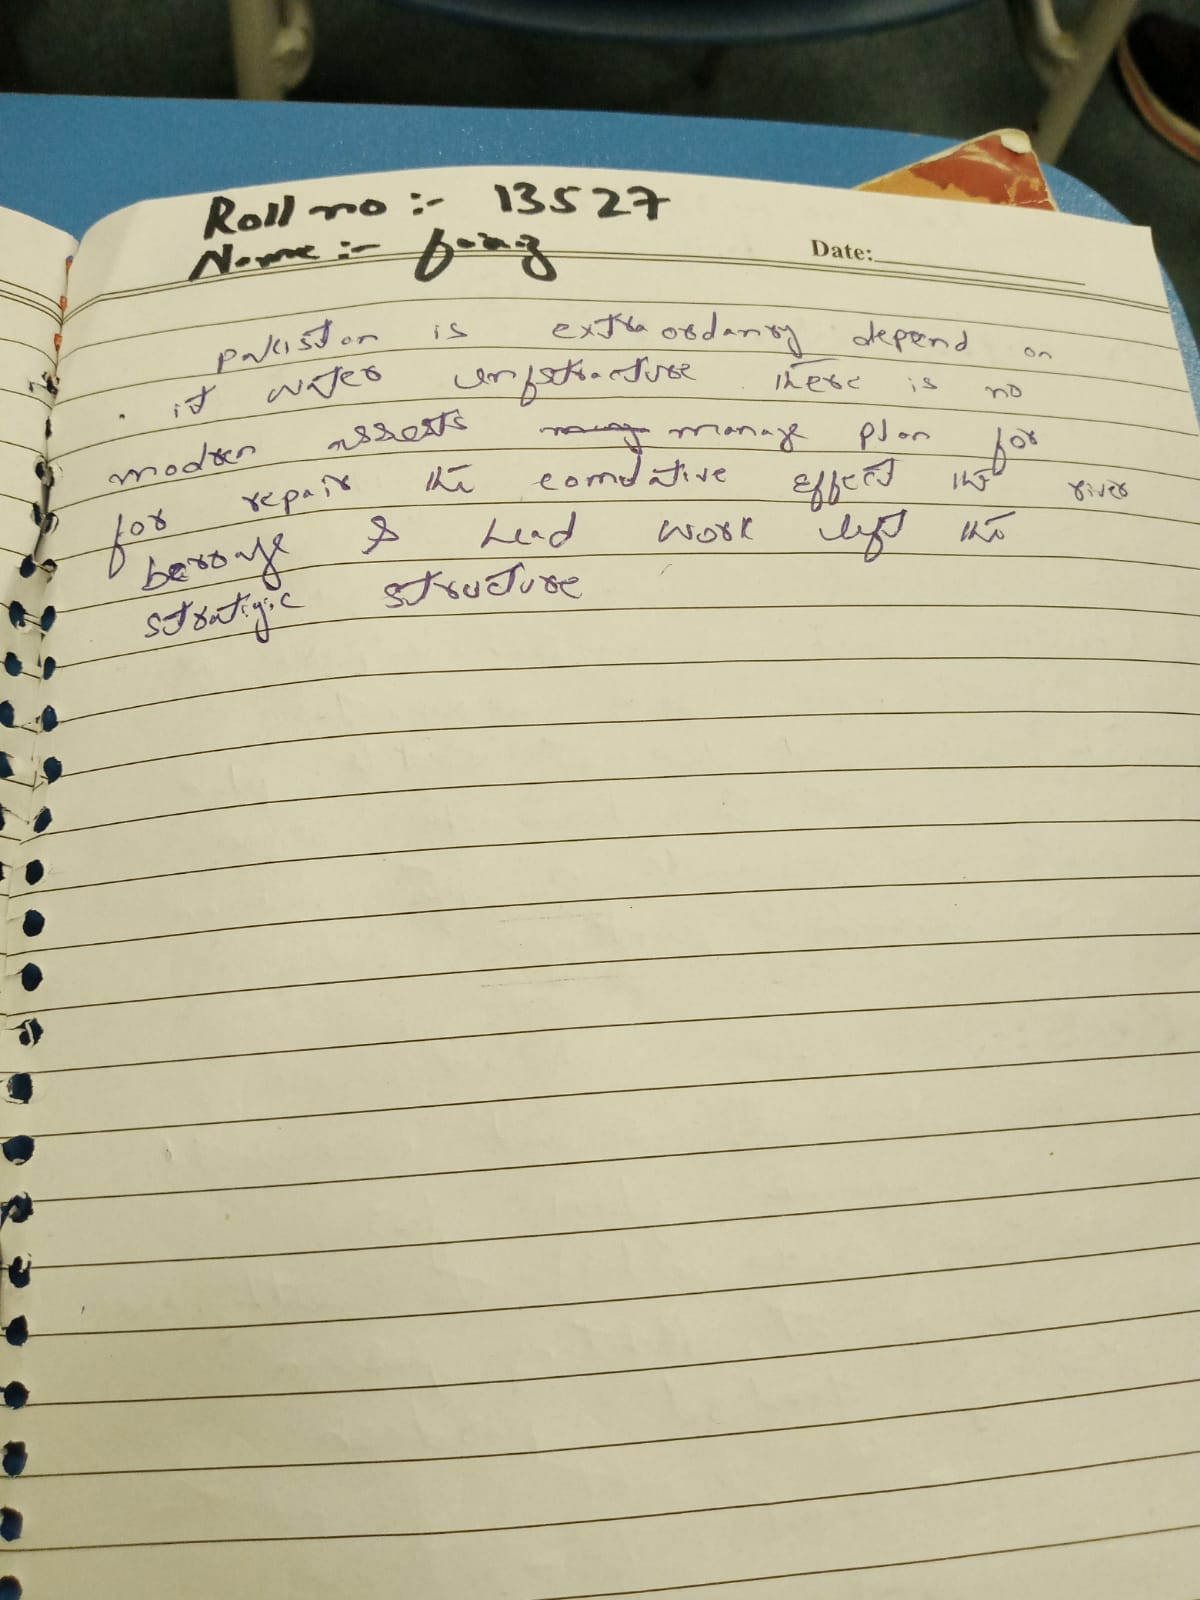 Roll no :- 13527
Name :- faaz
Date:
pakistan is extra ordanry depend on
it water unfstracture. there is no
modren assests manage plan for
for repair the comulative effect the river
barrage & head work left the
stratigic structure